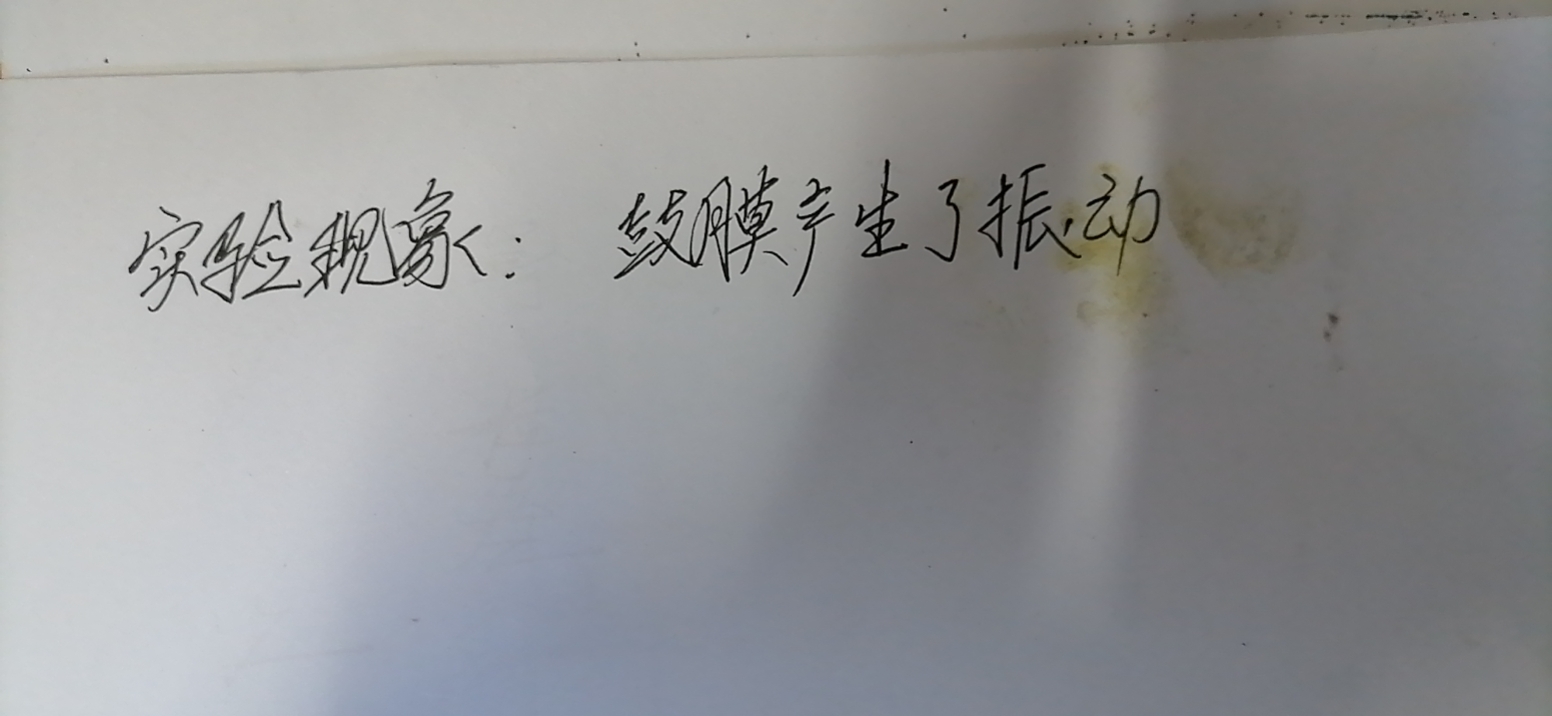 实验现象：鼓膜产生了振动